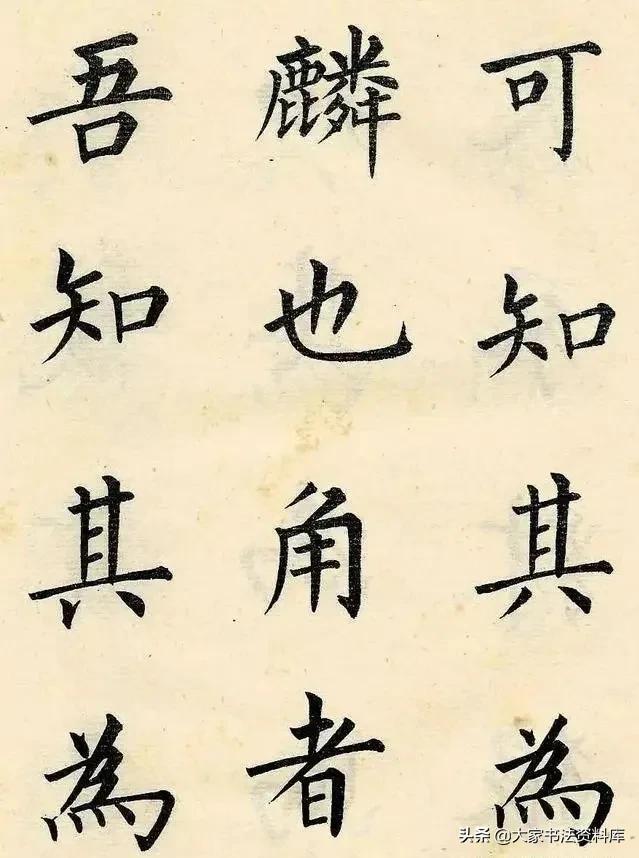 可知其為
麟也角者
吾知其為
头条 @大家书法资料库